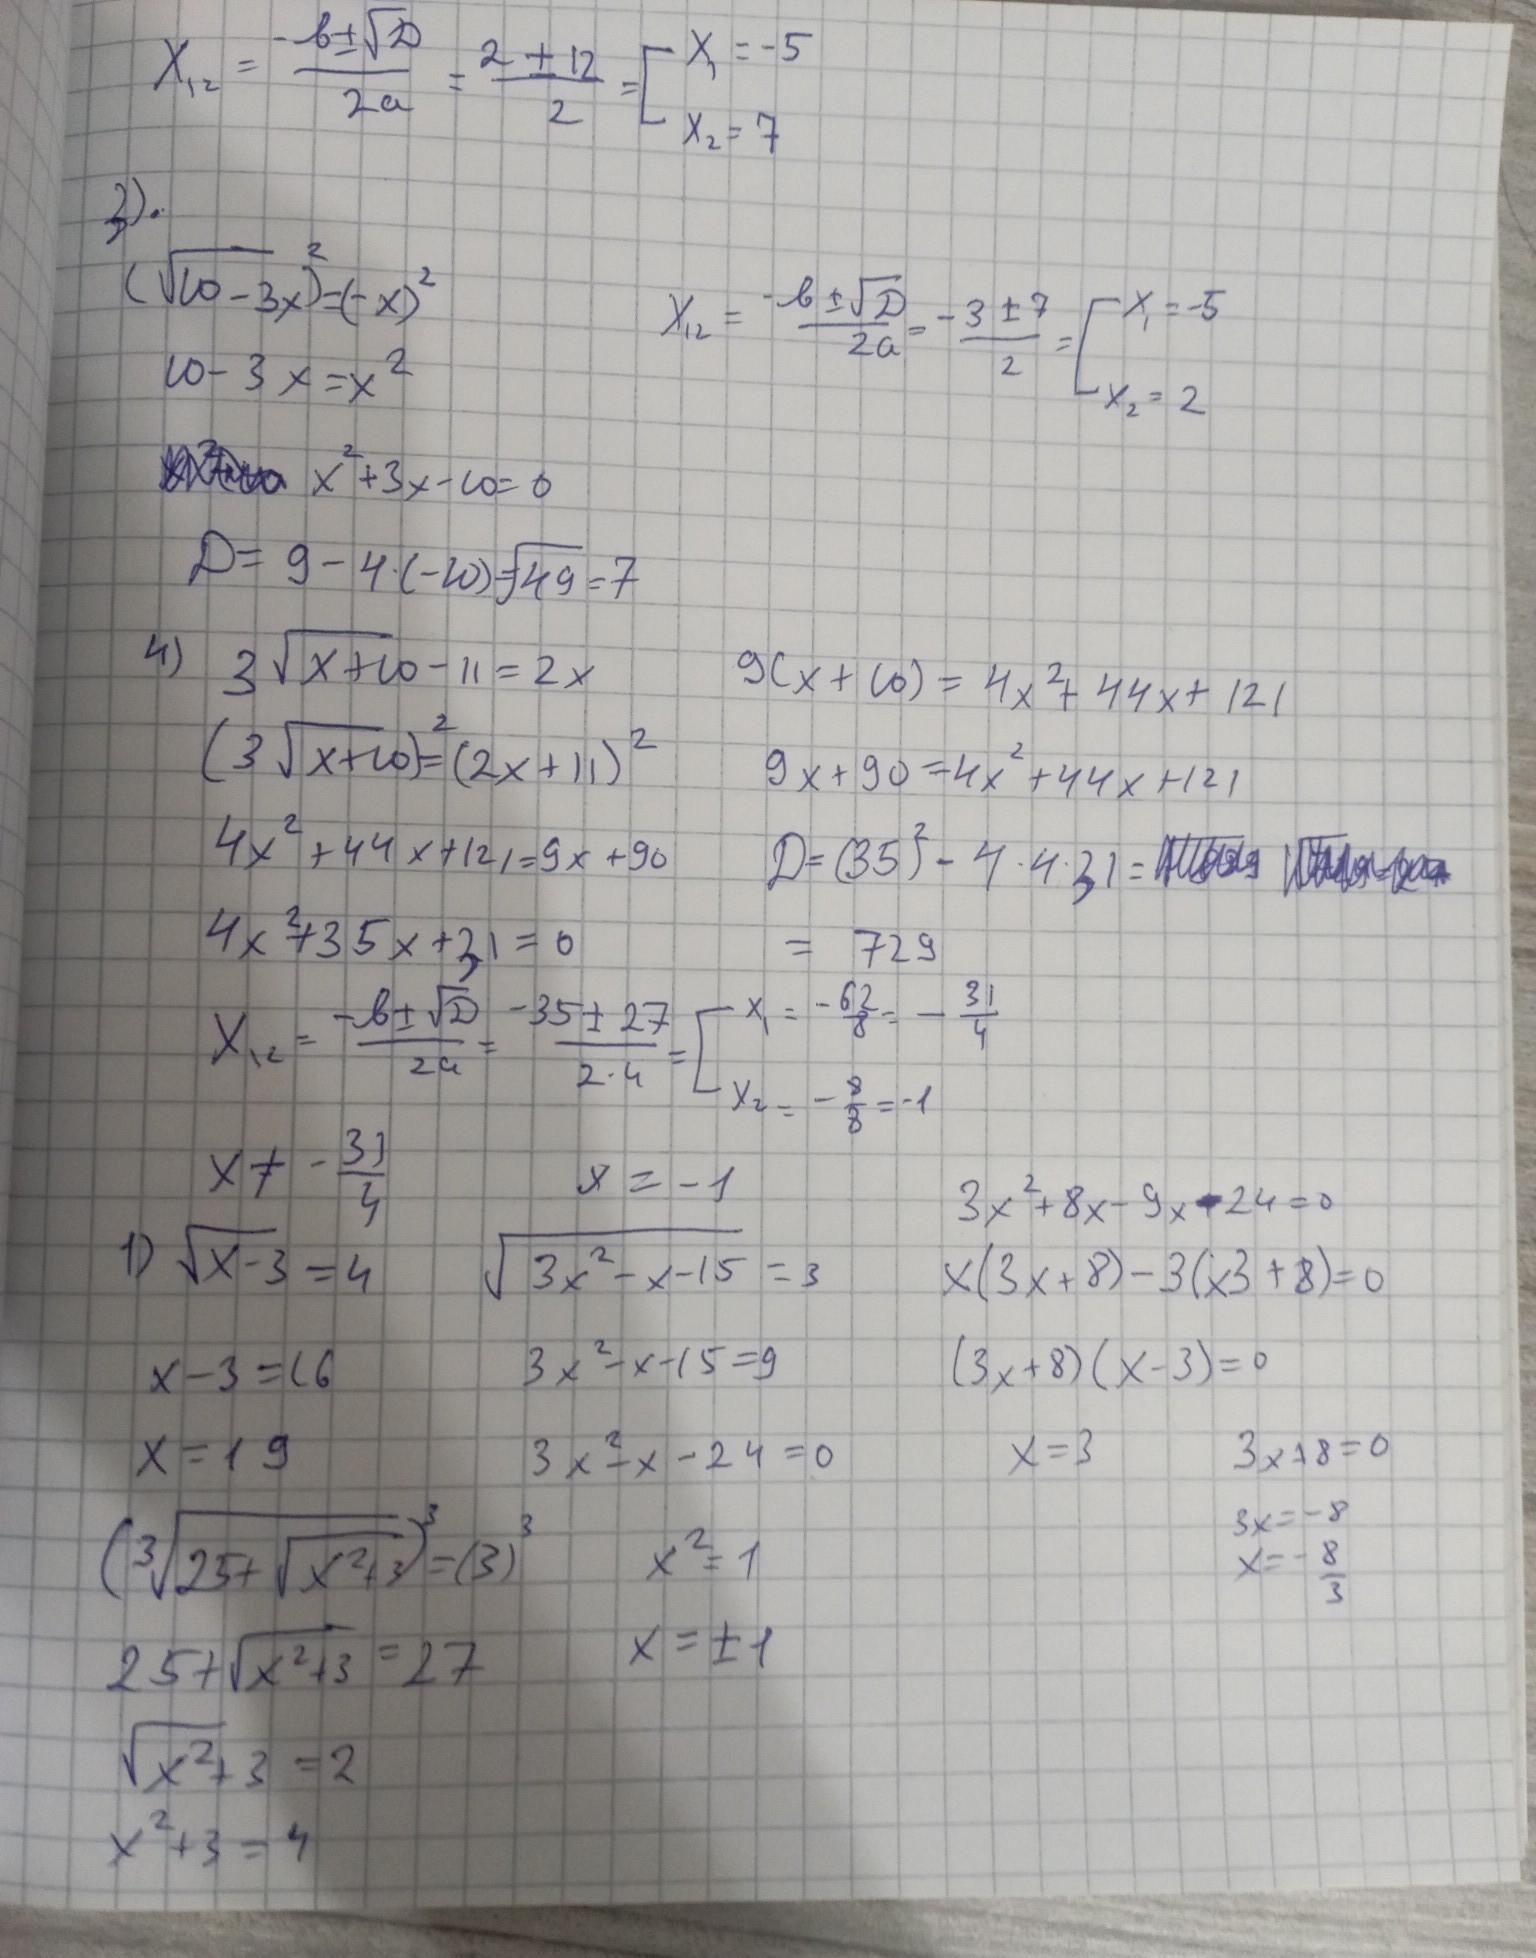 X₁₂ = (-b ± √D) / 2a = (2 ± 12) / 2 = [ X₁ = -5
X₂ = 7
3).
(√10 - 3x)² = (-x)²
10 - 3x = x²
x² + 3x - 10 = 0
D = 9 - 4·(-10) = √49 = 7
X₁₂ = (-b ± √D) / 2a = (-3 ± 7) / 2 = [ X₁ = -5
X₂ = 2
4) 3√x+10 - 11 = 2x
(3√x+10)² = (2x + 11)²
4x² + 44x + 121 = 9x + 90
4x² + 35x + 31 = 0
9(x + 10) = 4x² + 44x + 121
9x + 90 = 4x² + 44x + 121
D = (35)² - 4·4·31 =
= 729
X₁₂ = (-b ± √D) / 2a = (-35 ± 27) / 2·4 = [ X₁ = -62/8 = -31/4
X₂ = -8/8 = -1
x ≠ -31/4 x = -1
1) √x-3 = 4
x - 3 = 16
x = 19
√3x² - x - 15 = 3
3x² - x - 15 = 9
3x² - x - 24 = 0
3x² + 8x - 9x - 24 = 0
x(3x + 8) - 3(x3 + 8) = 0
(3x + 8)(x - 3) = 0
x = 3 3x + 8 = 0
3x = -8
x = -8/3
(³√25 + √x² + 3)³ = (3)³
25 + √x² + 3 = 27
√x² + 3 = 2
x² + 3 = 4
x² = 1
x = ±1